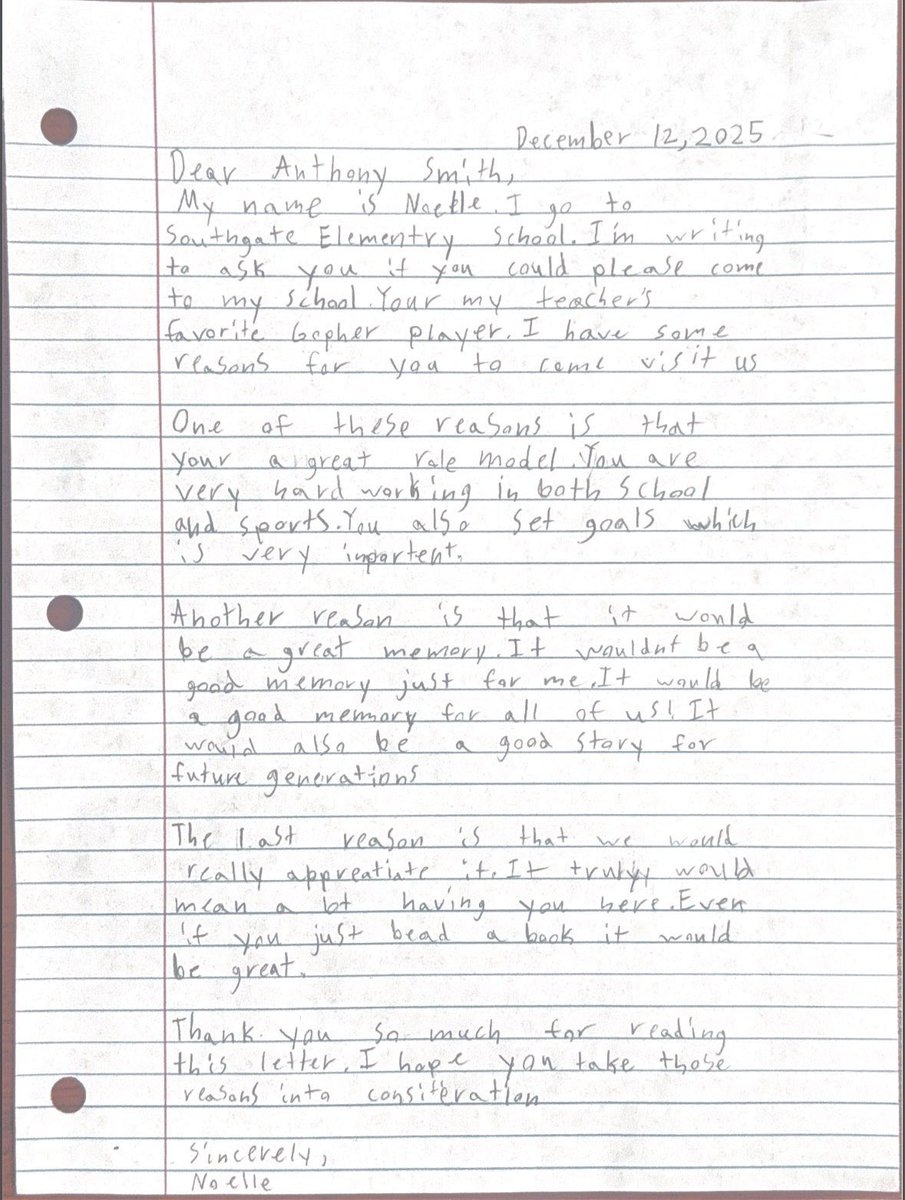 December 12, 2025
Dear Anthony Smith,
My name is Noelle. I go to
Southgate Elementry School. I'm writing
to ask you if you could please come
to my school. Your my teacher's
favorite Gopher player. I have some
reasons for you to come visit us
One of these reasons is that
your a great role model. You are
very hard working in both school
and sports. You also set goals which
is very importent.
Another reason is that it would
be a great memory. It wouldnt be a
good memory just for me. It would be
a good memory for all of us! It
would also be a good story for
future generations
The last reason is that we would
really appreatiate it. It truly would
mean a lot having you here. Even
if you just bead a book it would
be great.
Thank you so much for reading
this letter. I hope you take those
reasons into consiteration
Sincerely,
Noelle